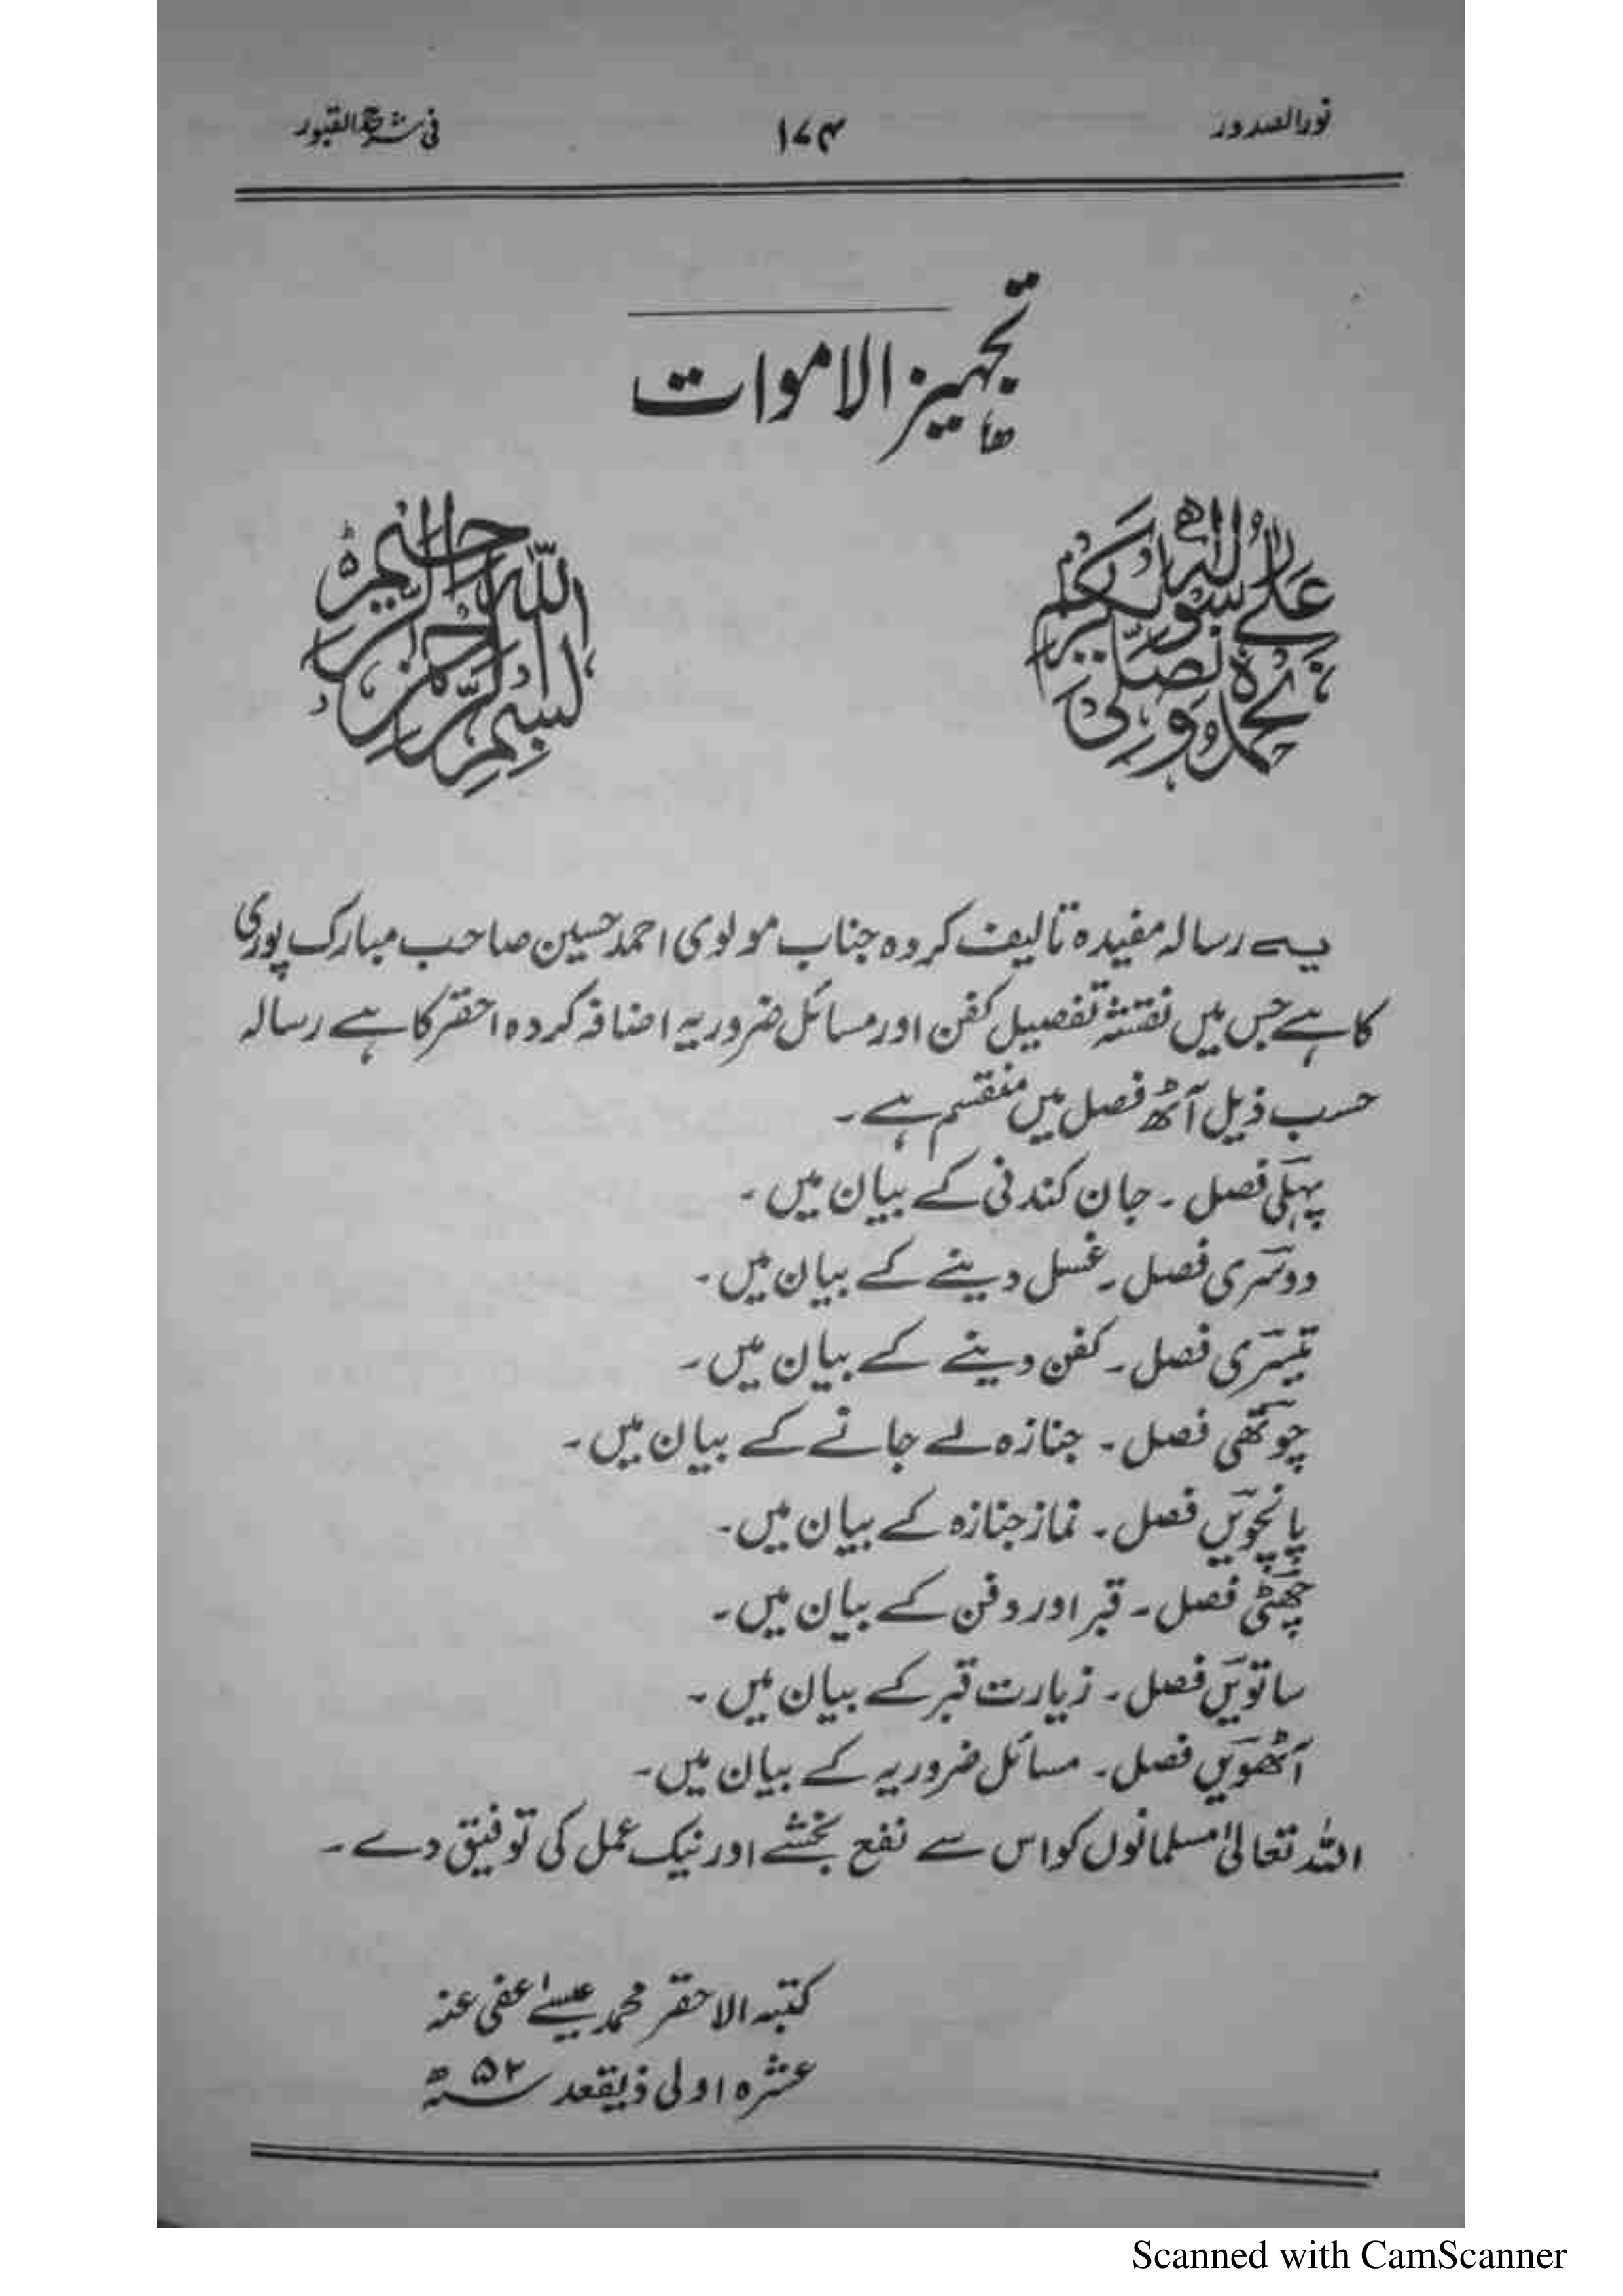 نورالصدور ۱۷۴ فی شرح القبور
تجہیز الاموات
نحمدہ ونصلی علی رسولہ الکریم
بسم اللہ الرحمن الرحیم
یہ رسالہ مفیدہ تالیف کردہ جناب مولوی احمد حسین صاحب مبارک پوری
کا ہے جس میں نقشہ تفصیل کفن اور مسائل ضروریہ اضافہ کردہ احقر کا ہے رسالہ
حسب ذیل آٹھ فصل میں منقسم ہے۔
پہلی فصل ۔ جان کندنی کے بیان میں ۔
دوسری فصل ۔ غسل دینے کے بیان میں ۔
تیسری فصل ۔ کفن دینے کے بیان میں ۔
چوتھی فصل ۔ جنازہ لے جانے کے بیان میں ۔
پانچویں فصل ۔ نماز جنازہ کے بیان میں ۔
چھٹی فصل ۔ قبر اور دفن کے بیان میں ۔
ساتویں فصل ۔ زیارت قبر کے بیان میں ۔
آٹھویں فصل ۔ مسائل ضروریہ کے بیان میں ۔
اللہ تعالیٰ مسلمانوں کو اس سے نفع بخشے اور نیک عمل کی توفیق دے ۔
کتبہ الاحقر محمد عیسےٰ عفی عنہ
عشرہ اولی ذیقعد ۵۲ھ
Scanned with CamScanner